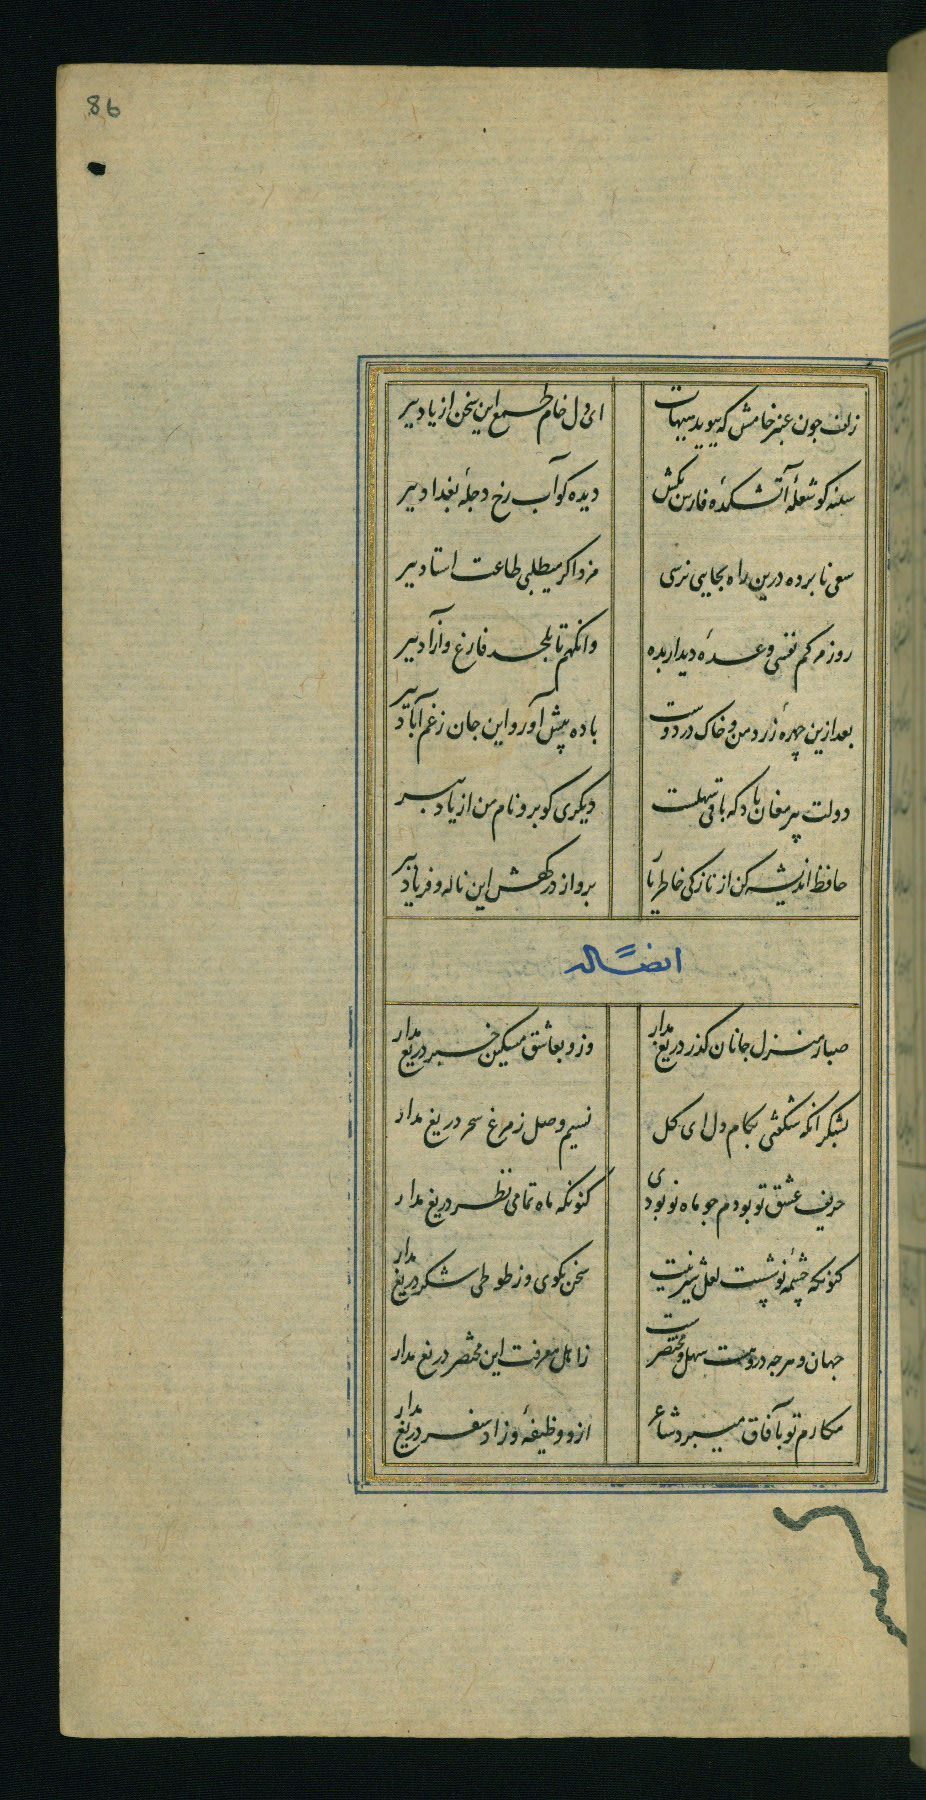 86
زلف جون عنبر خامش که ببوید هیهات ای دل خام طمع این سخن از یاد ببر
سینه کو شعلهٔ آتشکدهٔ فارس بکش دیده کو آب رخ دجلهٔ بغداد ببر
سعی نابرده درین راه بجایی نرسی مزد اکر میطلبی طاعت استاد ببر
روز مرکم نفسی وعدهٔ دیدار بده وانکهم تا بلحد فارغ و آزاد ببر
بعد ازین چهرهٔ زرد من و خاک در دوست باده پیش آور و این جان زغم آباد ببر
دولت پیر مغان باد که باقی سهلست دیکری کو برو نام من از یاد ببر
حافظ اندیشه کن از نازکی خاطر یار برو از درکهش این ناله و فریاد ببر
ایضاً له
صبا ز منزل جانان کذر دریغ مدار وزو بعاشق مسکین خبر دریغ مدار
بشکر انکه شکفتی بکام دل ای کل نسیم وصل ز مرغ سحر دریغ مدار
حریف عشق تو بودم جو ماه نو بودی کنونکه ماه تمامی نظر دریغ مدار
کنونکه چشمهٔ نوشست لعل شیرینت سخن بکوی وز طوطی شکر دریغ مدار
جهان و هرجه دروهست سهل و مختصرست ز اهل معرفت این مختصر دریغ مدار
مکارم تو بآفاق میبرد شاعر ازو وظیفهٔ و زاد سفر دریغ مدار